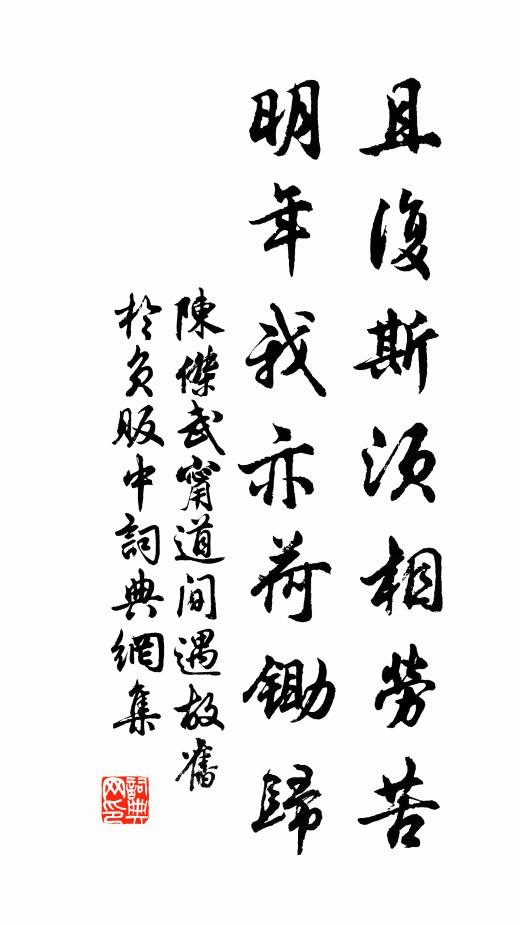 且復斯須相勞苦
明年我亦荷鋤歸
陳傑武甯道间遇故舊
於負販中詞典網集
詞典
网印